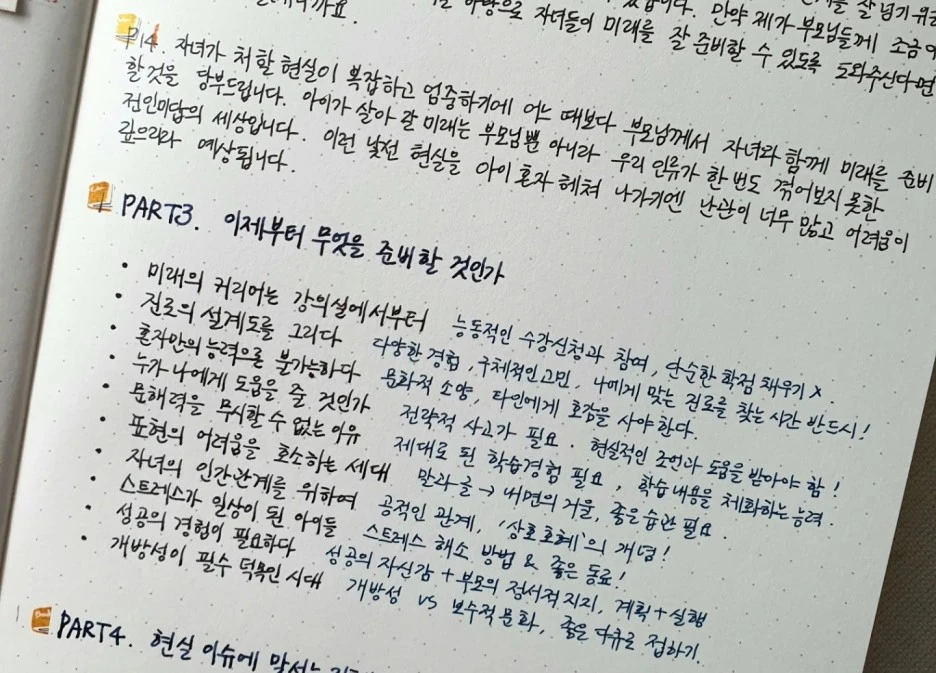 만약 제가 부모님들께 조금이
자녀들이 미래를 잘 준비할 수 있도록 도와주신다면
P14. 자녀가 처할 현실이 복잡하고 엄중하기에 어느 때보다 부모님께서 자녀와 함께 미래를 준비
할 것을 당부드립니다. 아이가 살아 갈 미래는 부모님뿐 아니라 우리 인류가 한 번도 겪어보지 못한
전인미답의 세상입니다. 이런 낯선 현실을 아이 혼자 헤쳐 나가기엔 난관이 너무 많고 어려움이
깊으리라 예상됩니다.
PART3. 이제부터 무엇을 준비할 것인가
• 미래의 커리어는 강의실에서부터 능동적인 수강신청과 참여, 단순한 학점 채우기 X.
• 진로의 설계도를 그리다 다양한 경험, 구체적인 고민, 나에게 맞는 진로를 찾는 시간 반드시!
• 혼자만의 능력으론 불가능하다 문화적 소양, 타인에게 호감을 사야 한다.
• 누가 나에게 도움을 줄 것인가 전략적 사고가 필요. 현실적인 조언과 도움을 받아야 함!
• 문해력을 무시할 수 없는 이유 제대로 된 학습경험 필요, 학습 내용을 체화하는 능력.
• 표현의 어려움을 호소하는 세대 말과 글 → 내면의 거울, 좋은 습관 필요
• 자녀의 인간관계를 위하여 공적인 관계, '상호호혜'의 개념!
• 스트레스가 일상이 된 아이들 스트레스 해소 방법 & 좋은 동료!
• 성공의 경험이 필요하다 성공의 자신감 + 부모의 정서적 지지, 계획 + 실행
• 개방성이 필수 덕목인 시대 개방성 vs 보수적 문화, 좋은 다큐로 접하기.
PART4. 현실 이슈에 맞서는